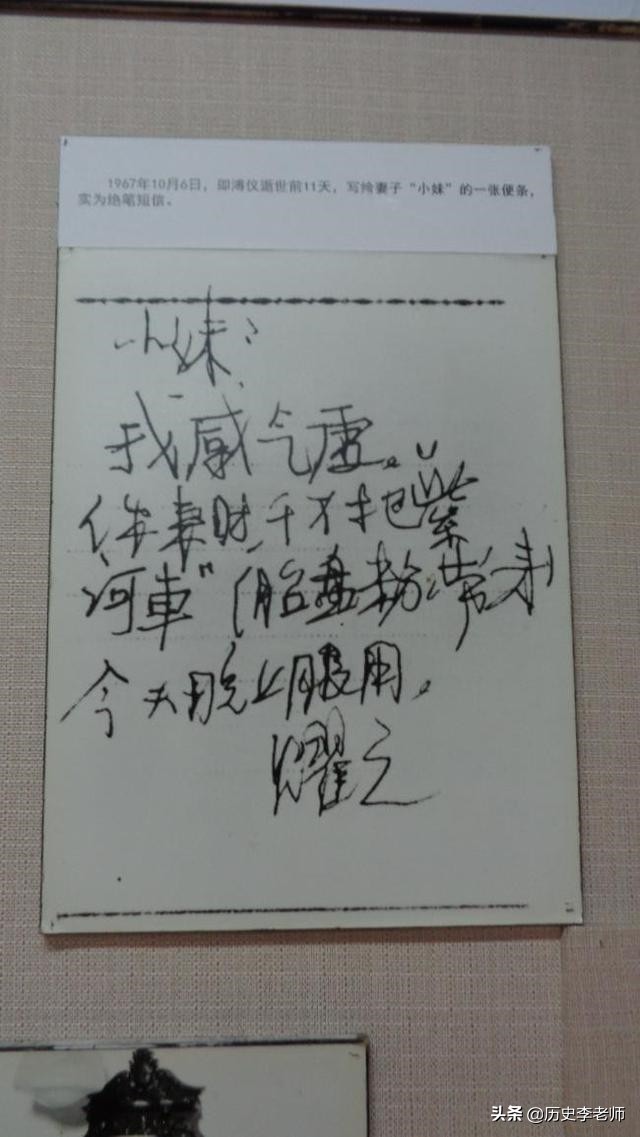 1967年10月6日，即溥仪逝世前11天，写给妻子“小妹”的一张便条，
实为绝笔短信。
小妹：
我感气虚。
你来时千万把“紫
河車”（胎盘粉带来
今天晚上服用。
耀之
头条 @历史李老师